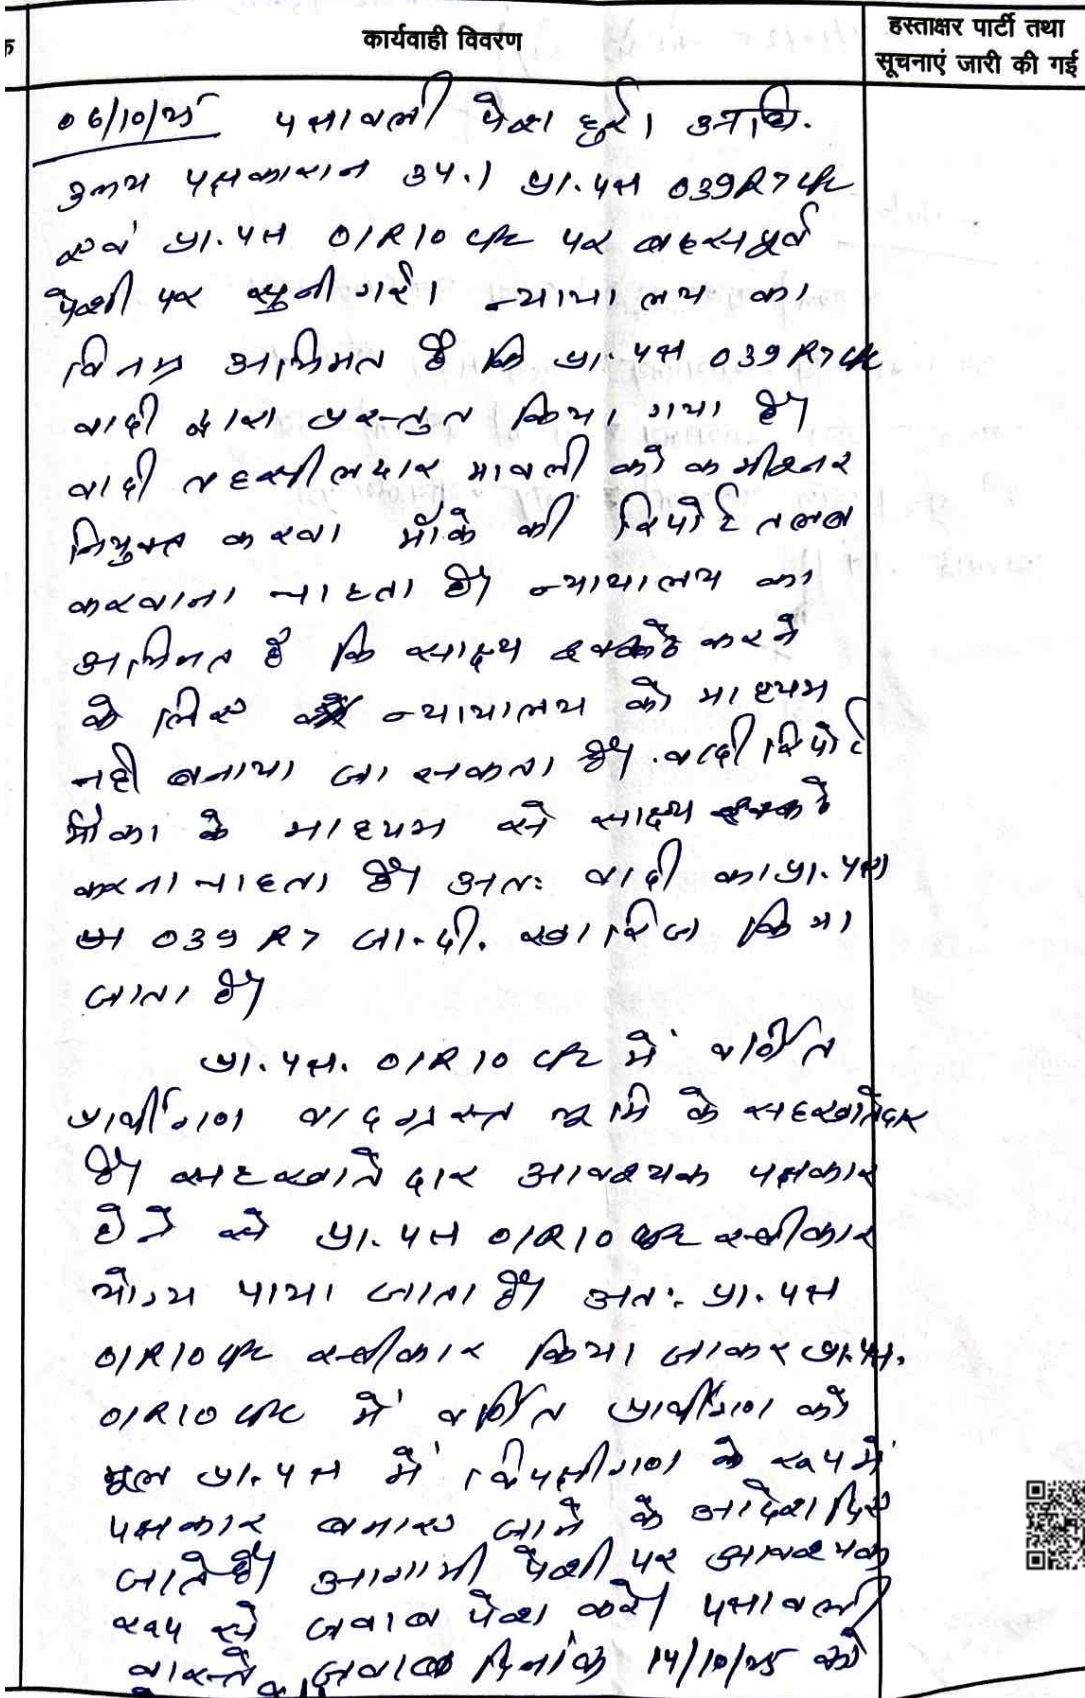 कार्यवाही विवरण
हस्ताक्षर पार्टी तथा
सूचनाएं जारी की गई
06/10/25 पत्रावली पेश हुई। अभि.
उभय पक्षकारान उप.। प्रा.पत्र 039R7 CPC
एवं प्रा.पत्र 01R10 CPC पर बहस पूर्व
पेशी पर सुनी गई। न्यायालय का
विनम्र अभिमत है कि प्रा.पत्र 039 R7 CPC
वादी द्वारा प्रस्तुत किया गया है।
वादी तहसीलदार मावली को कमीश्नर
नियुक्त करवा मौके की रिपोर्ट तलब
करवाना चाहता है। न्यायालय का
अभिमत है कि साक्ष्य इक्कठे करने
के लिए न्यायालय को माध्यम
नही बनाया जा सकता है। वादी रिपोर्ट
मौका के माध्यम से साक्ष्य इक्कठे
करना चाहता है। अतः वादी का प्रा.पत्र
039 R7 जा.दी. खारिज किया
जाता है।
प्रा.पत्र. 01R10 CPC में वर्णित
प्रार्थीगण वादग्रस्त भूमि के सहखातेदार
है। सहखातेदार आवश्यक पक्षकार
होने से प्रा.पत्र 01R10 CPC स्वीकार
योग्य पाया जाता है। अतः प्रा.पत्र
01R10 CPC स्वीकार किया जाकर प्रा.पत्र.
01R10 CPC में वर्णित प्रार्थीगण को
मूल प्रा.पत्र में विपक्षीगण के रूप में
पक्षकार बनाए जाने के आदेश दिए
जाते है। आगामी पेशी पर आवश्यक
रूप से जवाब पेश करे। पत्रावली
वास्ते जवाब दिनांक 14/10/25 को